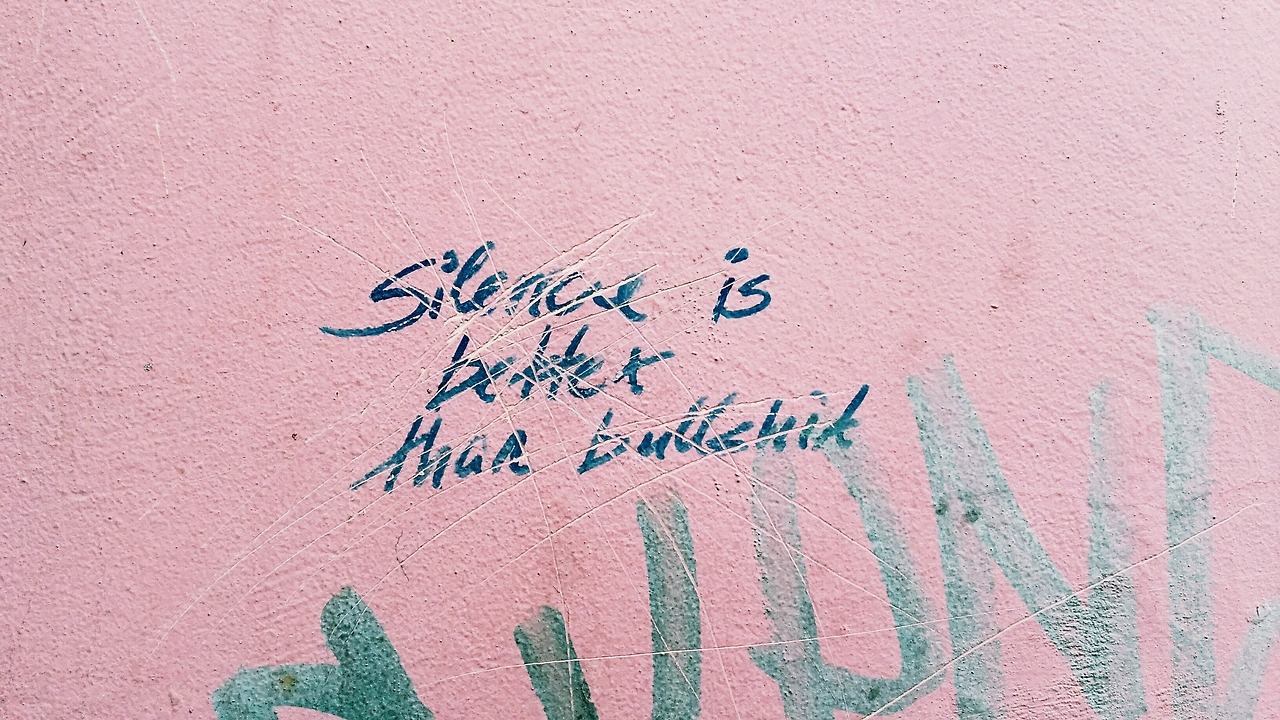 Silence is
better
than bullshit